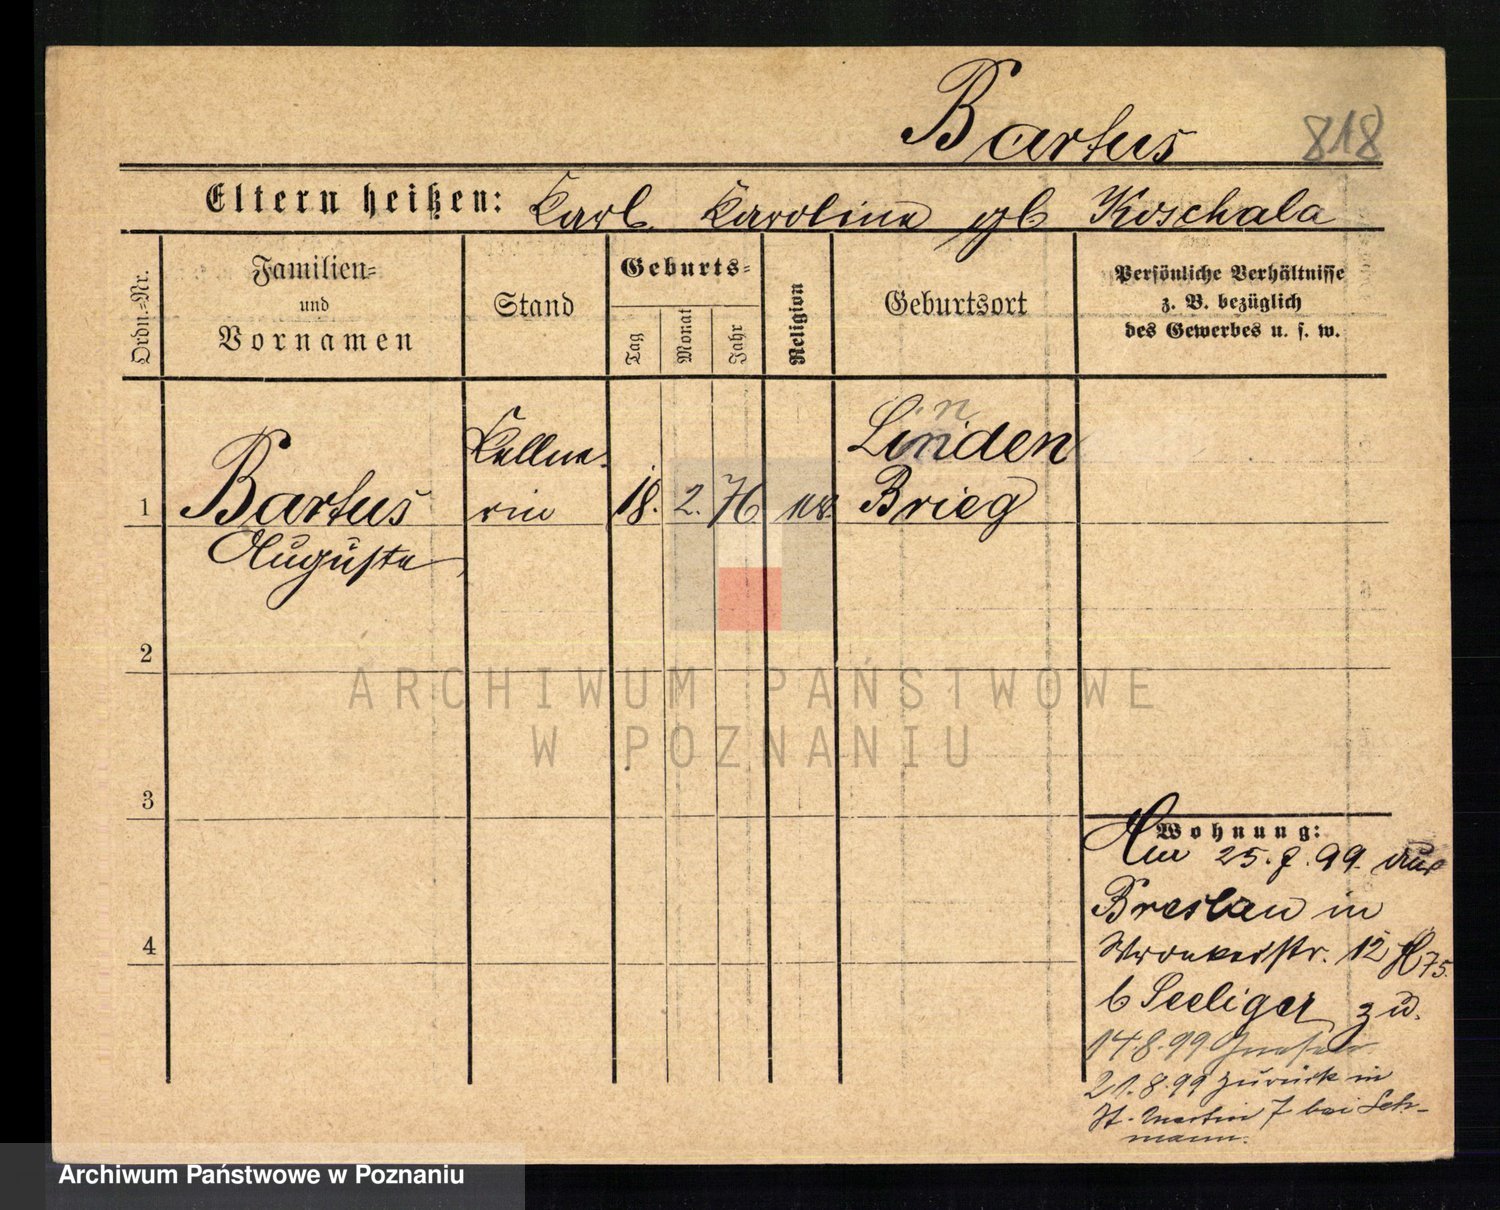 Bartus 818
Eltern heißen: Karl Karoline gb Koschala
Ordn.-Nr.
Familien-
und
Vornamen
Stand
Geburts-
Tag
Monat
Jahr
Religion
Geburtsort
Persönliche Verhältnisse
z. B. bezüglich
des Gewerbes u. s. w.
1
Bartus
Auguste
Kellne-
rin
18. 2. 76
n
Linden
Brieg
2
ARCHIWUM PAŃSTWOWE
W POZNANIU
3
4
Wohnung:
Am 25. 7. 99 aus
Breslau in
Wronkerstr. 12 H 75
b Seeliger zu.
14.8.99
21.8.99 zurück in
St. Martin 7 bei Leh-
mann.
Archiwum Państwowe w Poznaniu